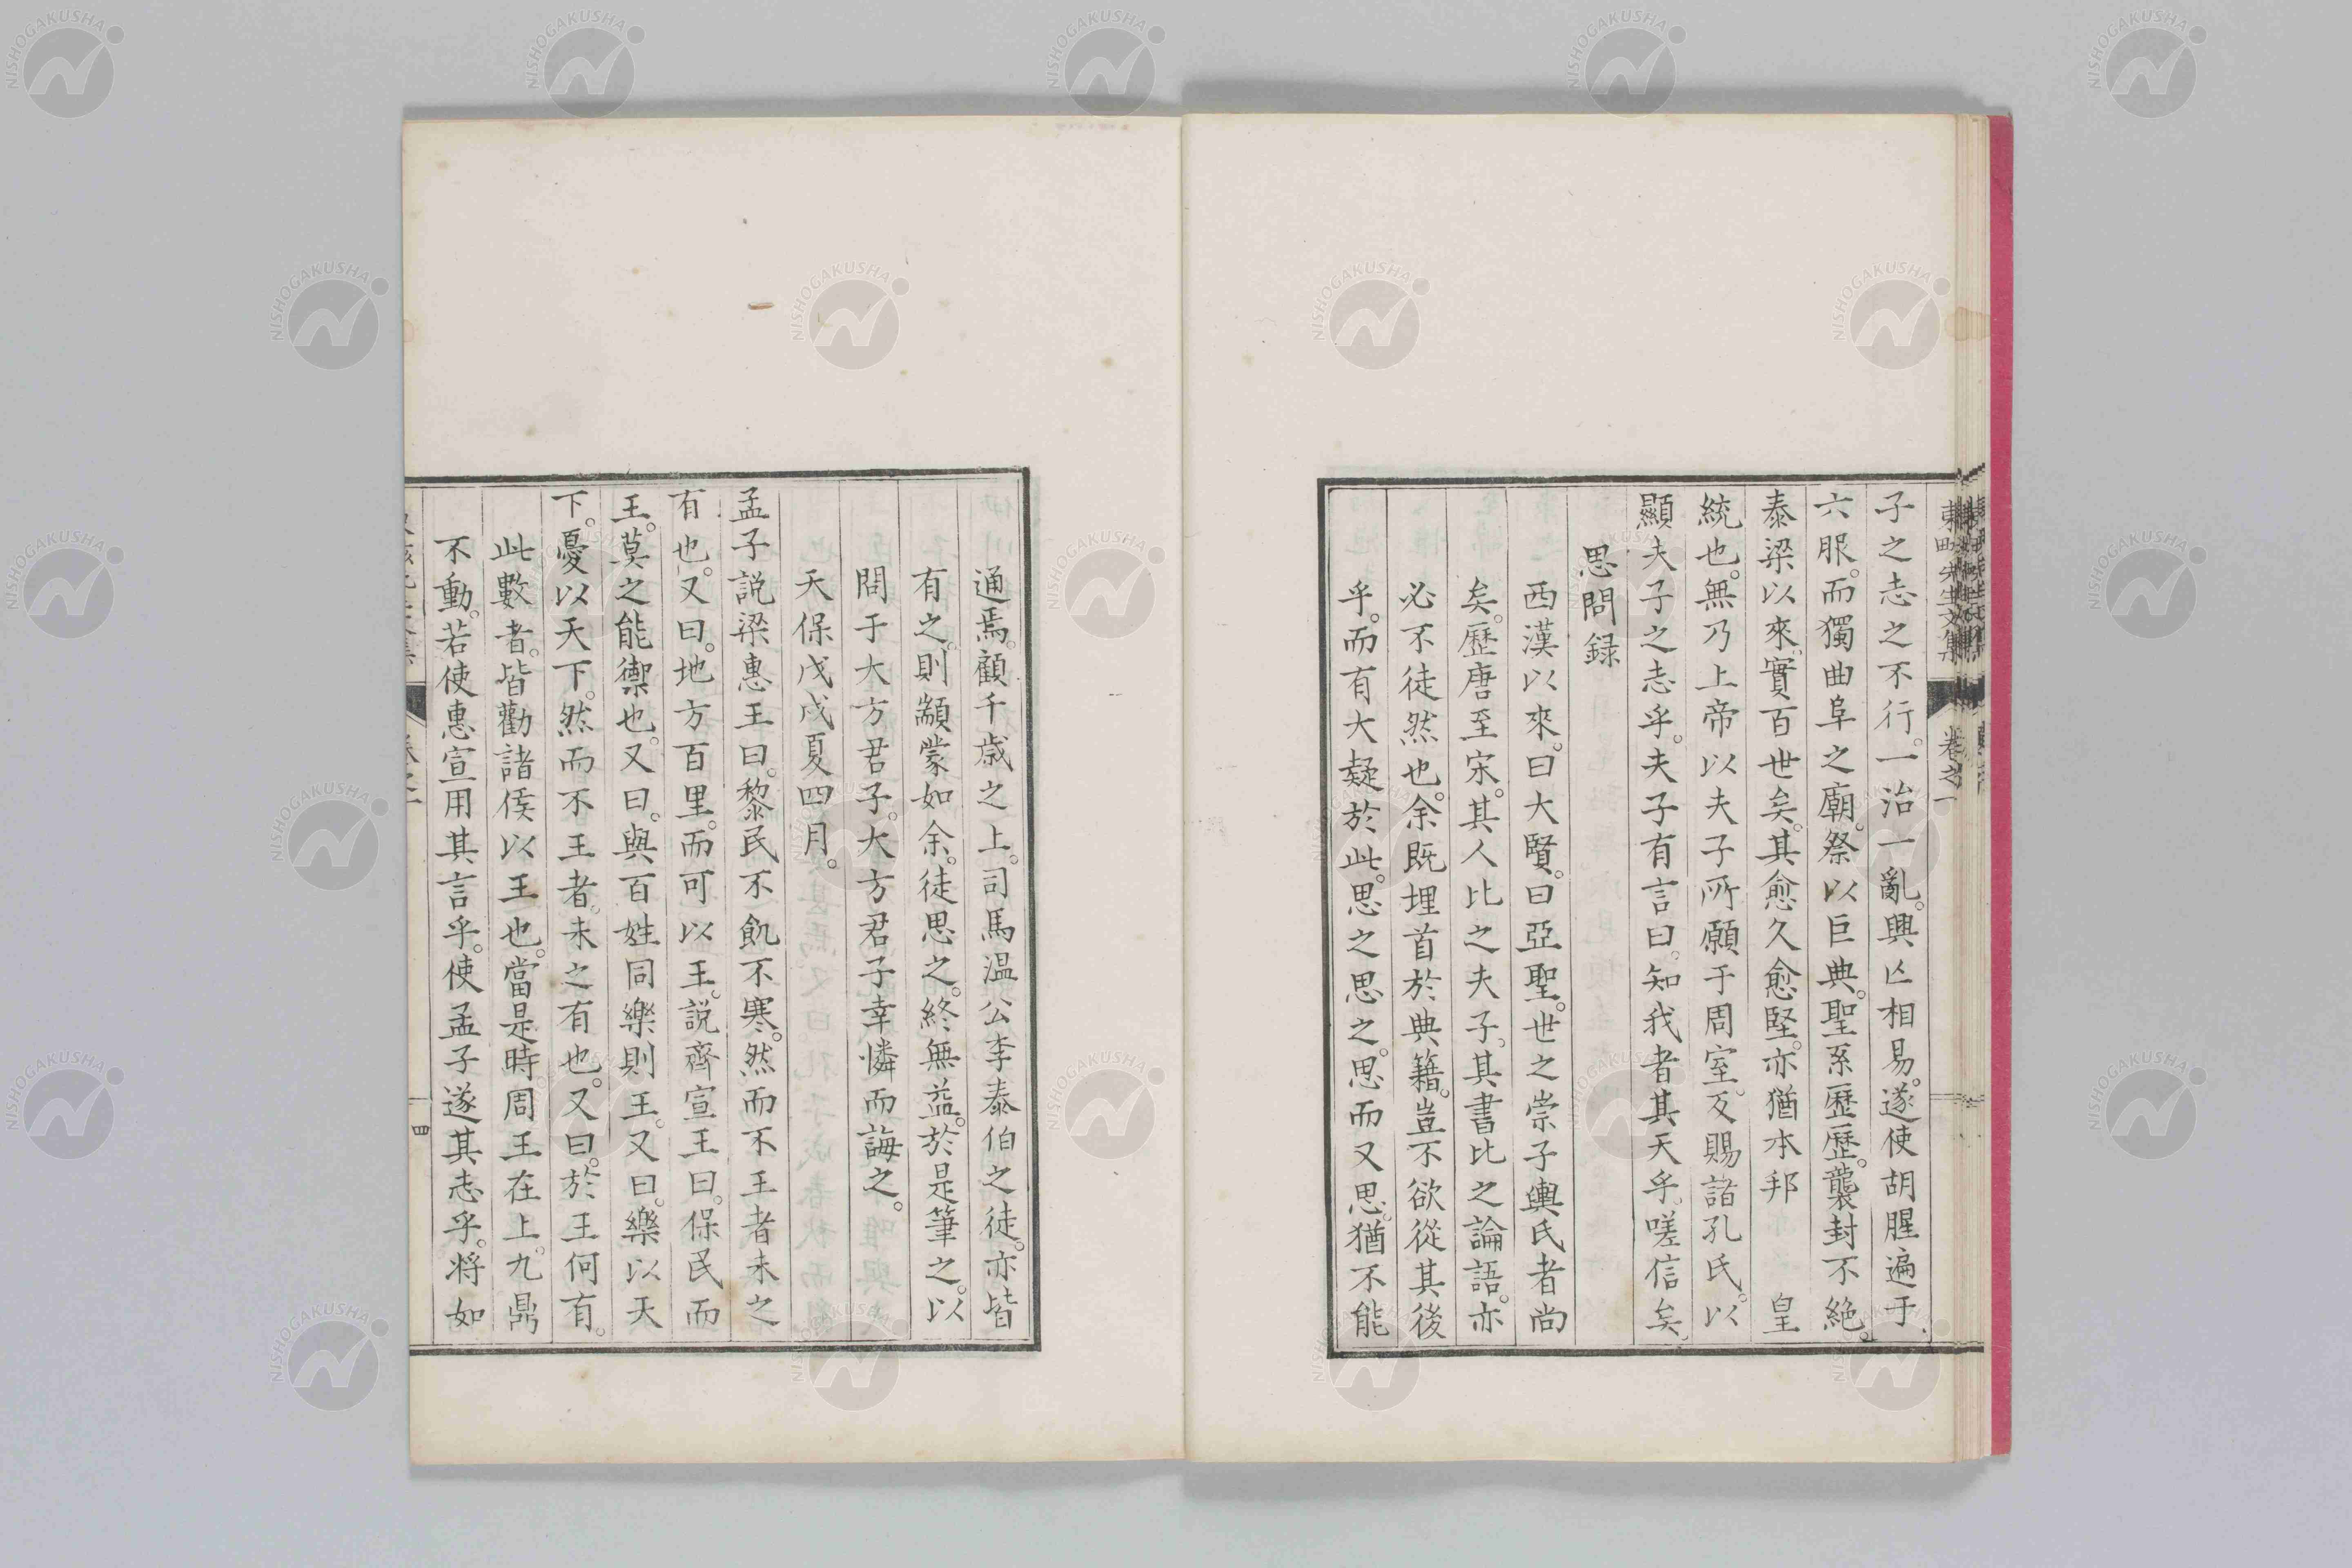 子之志之不行。一治一亂。興亡相易。遂使胡腥遍于
六服。而獨曲阜之廟。祭以巨典。聖系歷歷。襲封不絶。
泰梁以來。實百世矣。其愈久愈堅。亦猶本邦 皇
統也。無乃上帝以夫子所願于周室。反賜諸孔氏。以
顯夫子之志乎。夫子有言曰。知我者其天乎。嗟信矣。
思問録
西漢以來。曰大賢。曰亞聖。世之崇子輿氏者尚
矣。歷唐至宋。其人比之夫子。其書比之論語。亦
必不徒然也。余既埋首於典籍。豈不欲從其後
乎。而有大疑於此。思之思之。思而又思。猶不能
通焉。顧千歳之上。司馬温公李泰伯之徒。亦皆
有之。則顓蒙如余。徒思之。終無益。於是筆之。以
問于大方君子。大方君子幸憐而誨之。
天保戊戌夏四月。
孟子説梁惠王曰。黎民不飢不寒。然而不王者未之
有也。又曰。地方百里。而可以王。説齊宣王曰。保民而
王。莫之能禦也。又曰。與百姓同樂則王。又曰。樂以天
下。憂以天下。然而不王者。未之有也。又曰。於王何有。
此數者。皆勸諸侯以王也。當是時周王在上。九鼎
不動。若使惠宣用其言乎。使孟子遂其志乎。將如
四